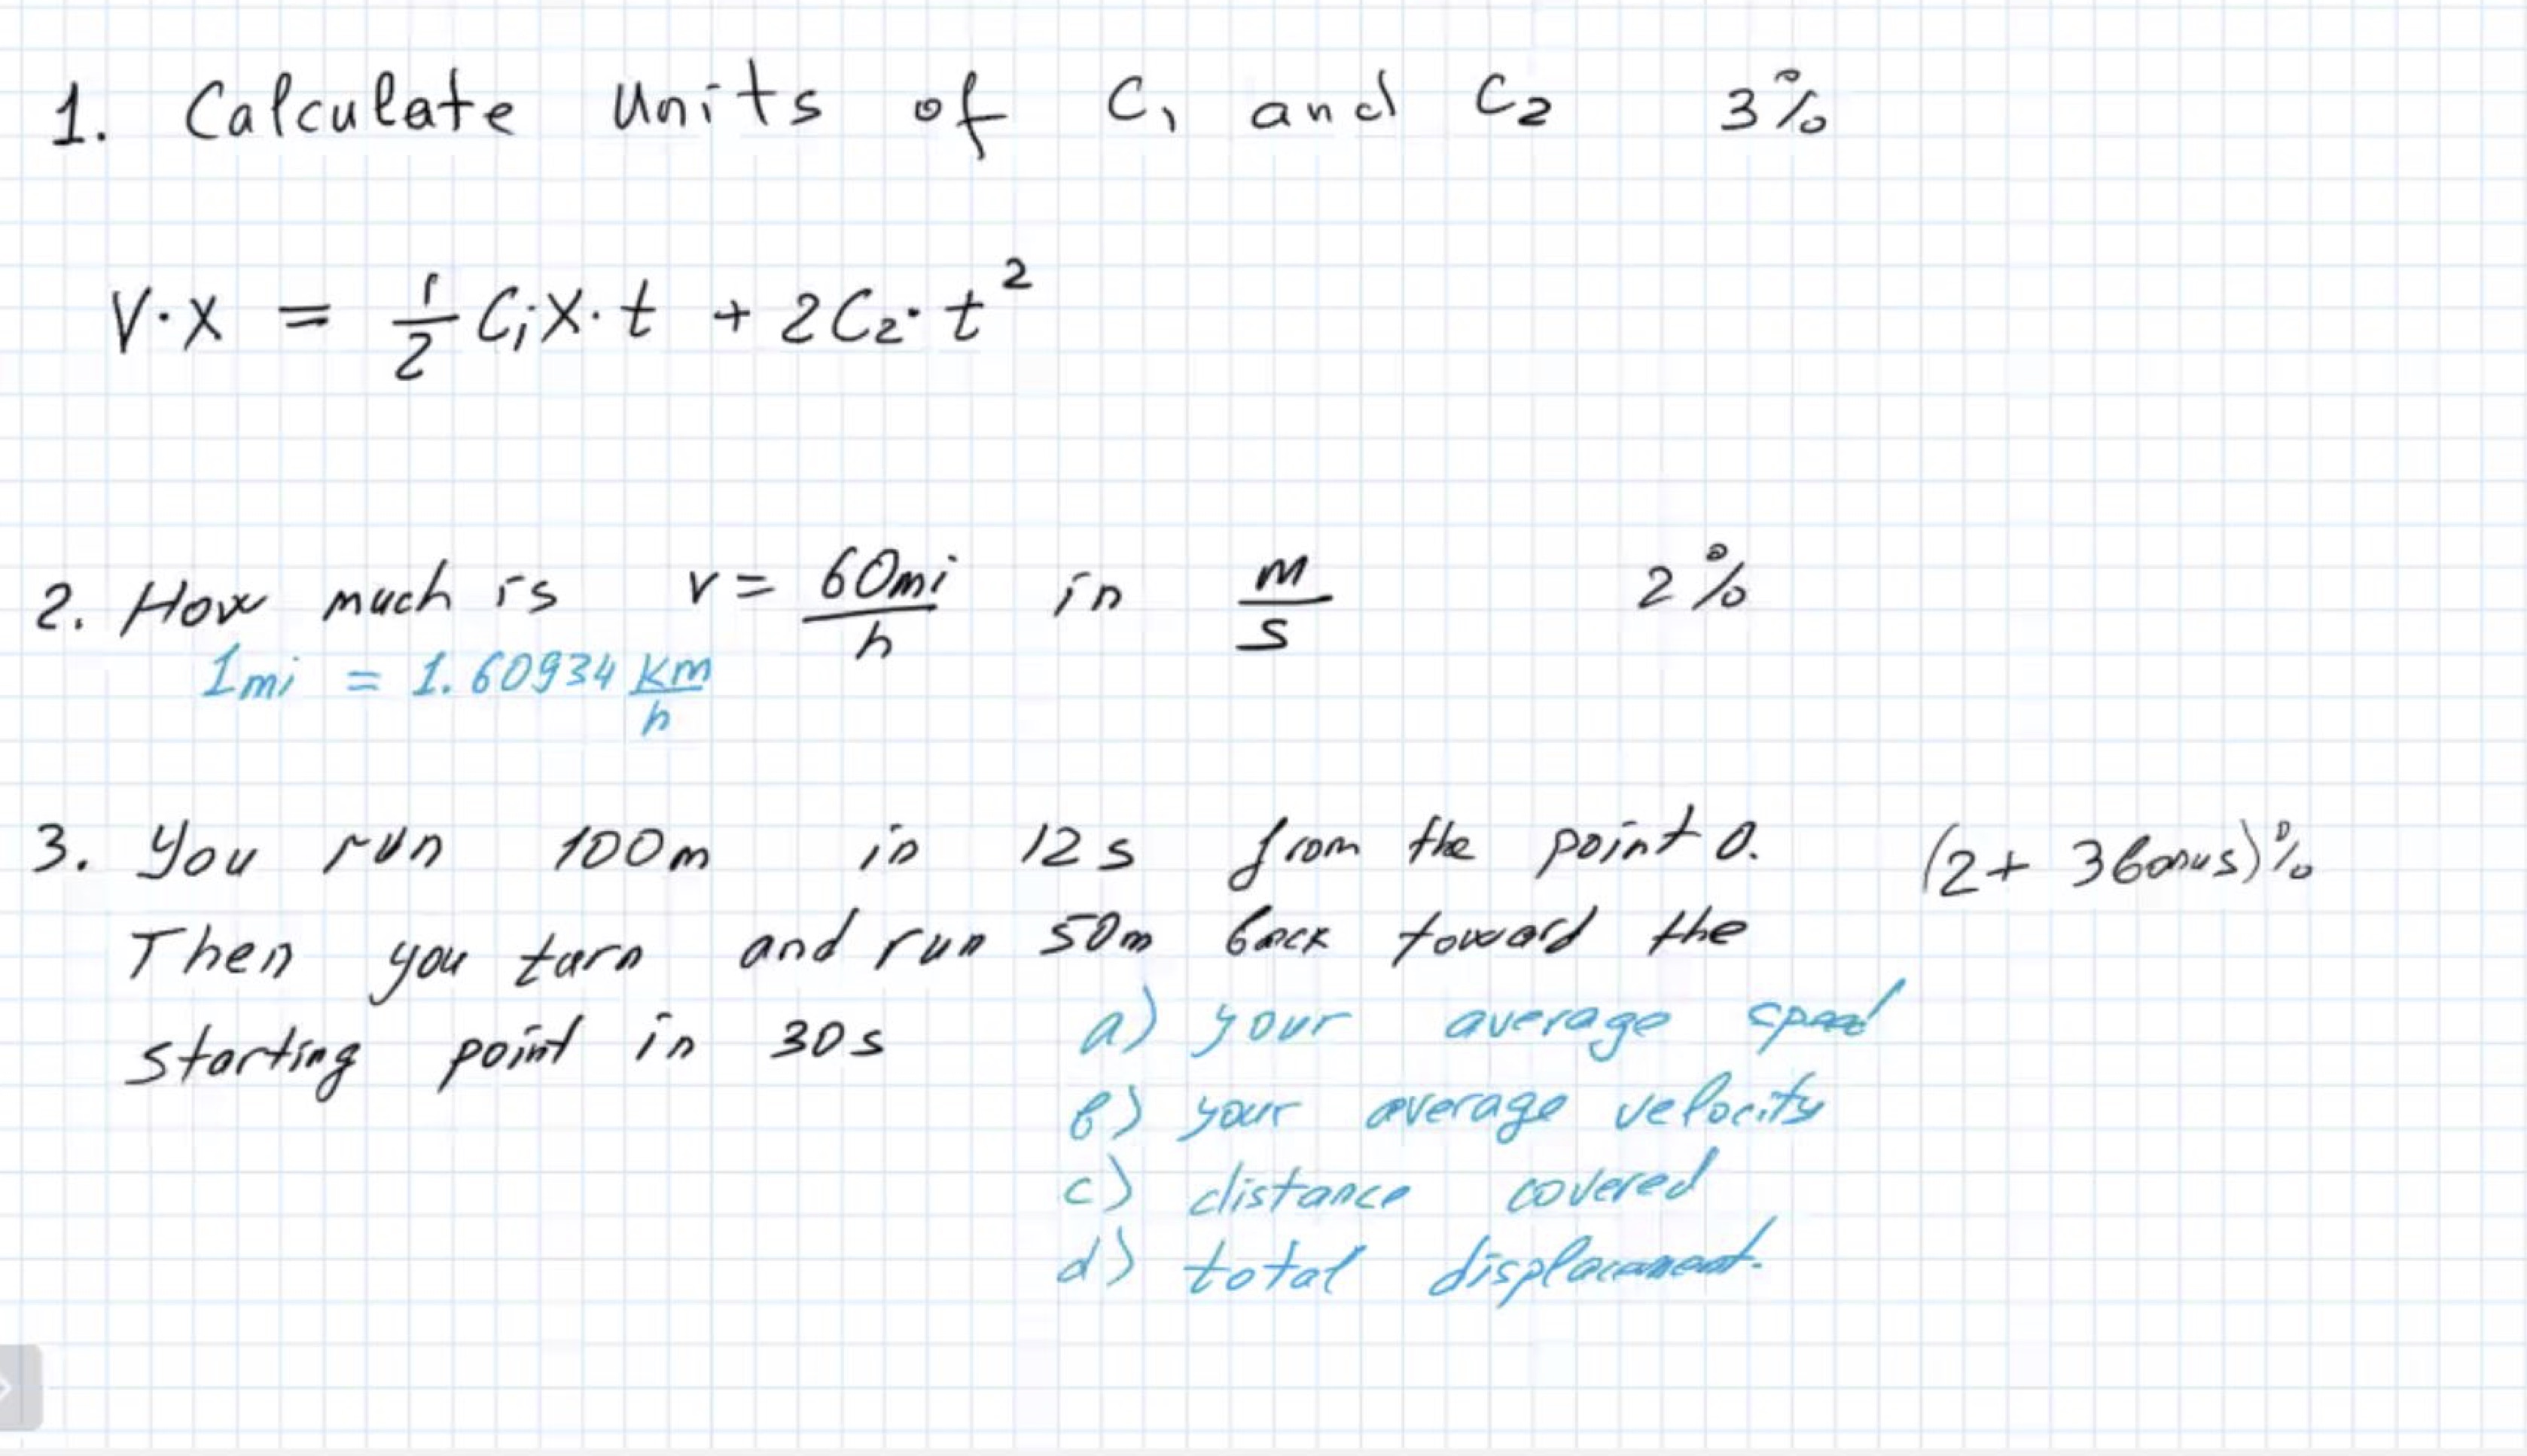 1. Calculate units of C₁ and C₂ 3%
V·x = 1/2 C₁x·t + 2C₂·t²
2. How much is v = 60mi/h in m/s 2%
1mi = 1.60934 km/h
3. You run 100m in 12s from the point 0. (2+ 3 bonus)%
Then you turn and run 50m back toward the
starting point in 30s
a) your average speed
b) your average velocity
c) distance covered
d) total displacement.